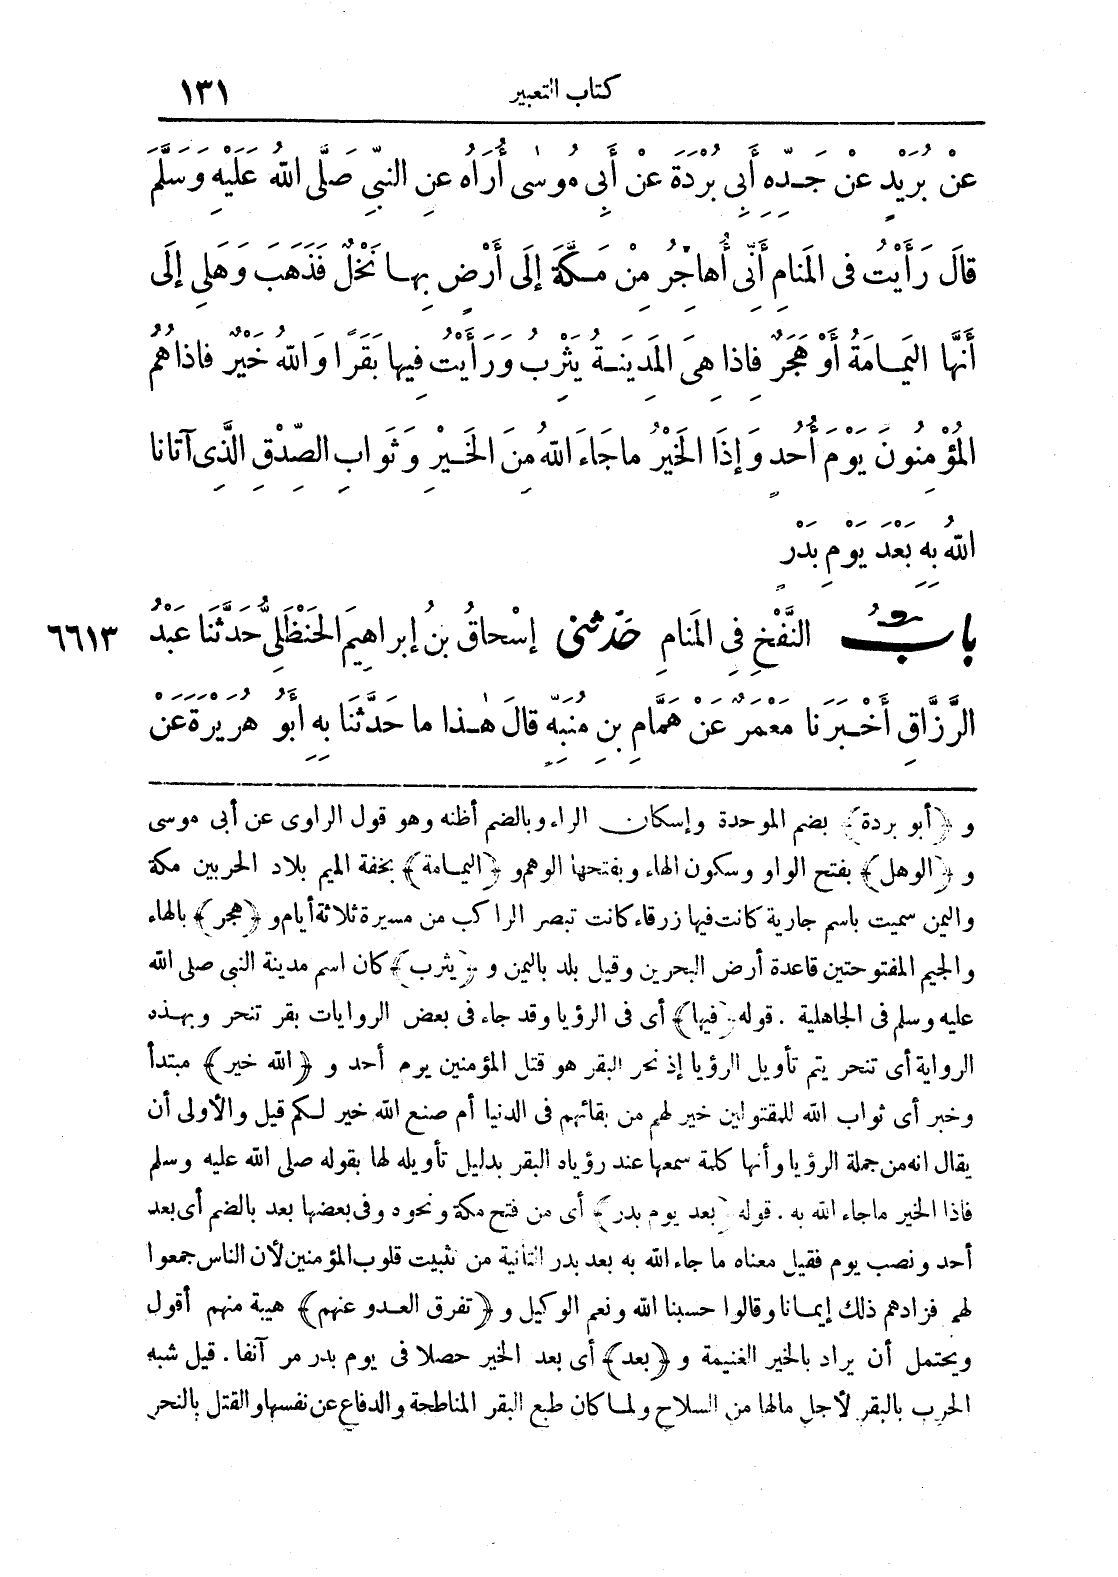 كتاب التعبير ١٣١
عَنْ بُرَيْدٍ عَنْ جَدِّهِ أَبِي بُرْدَةَ عَنْ أَبِي مُوسَى أُرَاهُ عَنِ النَّبِيِّ صَلَّى اللهُ عَلَيْهِ وَسَلَّمَ
قَالَ رَأَيْتُ فِى الْمَنَامِ أَنِّى أُهَاجِرُ مِنْ مَكَّةَ إِلَى أَرْضٍ بِهَا نَخْلٌ فَذَهَبَ وَهَلِى إِلَى
أَنَّهَا الْيَمَامَةُ أَوْ هَجَرٌ فَاذَا هِىَ الْمَدِينَةُ يَثْرِبُ وَرَأَيْتُ فِيهَا بَقَرًا وَاللهُ خَيْرٌ فَاذَاهُمُ
الْمُؤْمِنُونَ يَوْمَ أُحُدٍ وَإِذَا الْخَيْرُ مَاجَاءَ اللهُ مِنَ الْخَيْرِ وَثَوَابِ الصِّدْقِ الَّذِى آتَانَا
اللهُ بِهِ بَعْدَ يَوْمِ بَدْرٍ
بابُ النَّفْخِ فِى الْمَنَامِ حَدَّثَنِى إِسْحَاقُ بْنُ إِبرَاهِيمَ الْحَنْظَلِىُّ حَدَّثَنَا عَبْدُ ٦٦١٣
الرَّزَّاقِ أَخْبَرَنَا مَعْمَرٌ عَنْ هَمَّامِ بنِ مُنَبِّهٍ قَالَ هٰذَا مَا حَدَّثَنَا بِهِ أَبُو هُرَيْرَةَ عَنْ
و ﴿أبو بردة﴾ بضم الموحدة وإسكان الراء وبالضم أظنه وهو قول الراوى عن أبى موسى
و ﴿الوهل﴾ بفتح الواو وسكون الهاء وبفتحها الوهم و ﴿اليمامة﴾ بخفة الميم بلاد الحربين مكة
واليمن سميت باسم جارية كانت فيها زرقاء كانت تبصر الراكب من مسيرة ثلاثة أيام و ﴿هجر﴾ بالهاء
والجيم المفتوحتين قاعدة أرض البحرين وقيل بلد باليمن و ﴿يثرب﴾ كان اسم مدينة النبى صلى الله
عليه وسلم فى الجاهلية . قوله ﴿فيها﴾ أى فى الرؤيا وقد جاء فى بعض الروايات بقر تنحر وبهذه
الرواية أى تنحر يتم تأويل الرؤيا إذ نحر البقر هو قتل المؤمنين يوم أحد و ﴿الله خير﴾ مبتدأ
وخبر أى ثواب الله للمقتولين خير لهم من بقائهم فى الدنيا أم صنع الله خير لكم قيل والأولى أن
يقال انه من جملة الرؤيا وأنها كلمة سمعها عند رؤياه البقر بدليل تأويله لها بقوله صلى الله عليه وسلم
فاذا الخير ماجاء الله به . قوله ﴿بعد يوم بدر﴾ أى من فتح مكة ونحوه وفى بعضها بعد بالضم أى بعد
أحد ونصب يوم فقيل معناه ما جاء الله به بعد بدر الثانية من تثبيت قلوب المؤمنين لأن الناس جمعوا
لهم فزادهم ذلك إيمانا وقالوا حسبنا الله ونعم الوكيل و ﴿تفرق العدو عنهم﴾ هيبة منهم أقول
ويحتمل أن يراد بالخير الغنيمة و ﴿بعد﴾ أى بعد الخير حصلا فى يوم بدر مر آنفا . قيل شبه
الحرب بالبقر لأجل مالها من السلاح ولما كان طبع البقر المناطحة والدفاع عن نفسها والقتل بالنحر